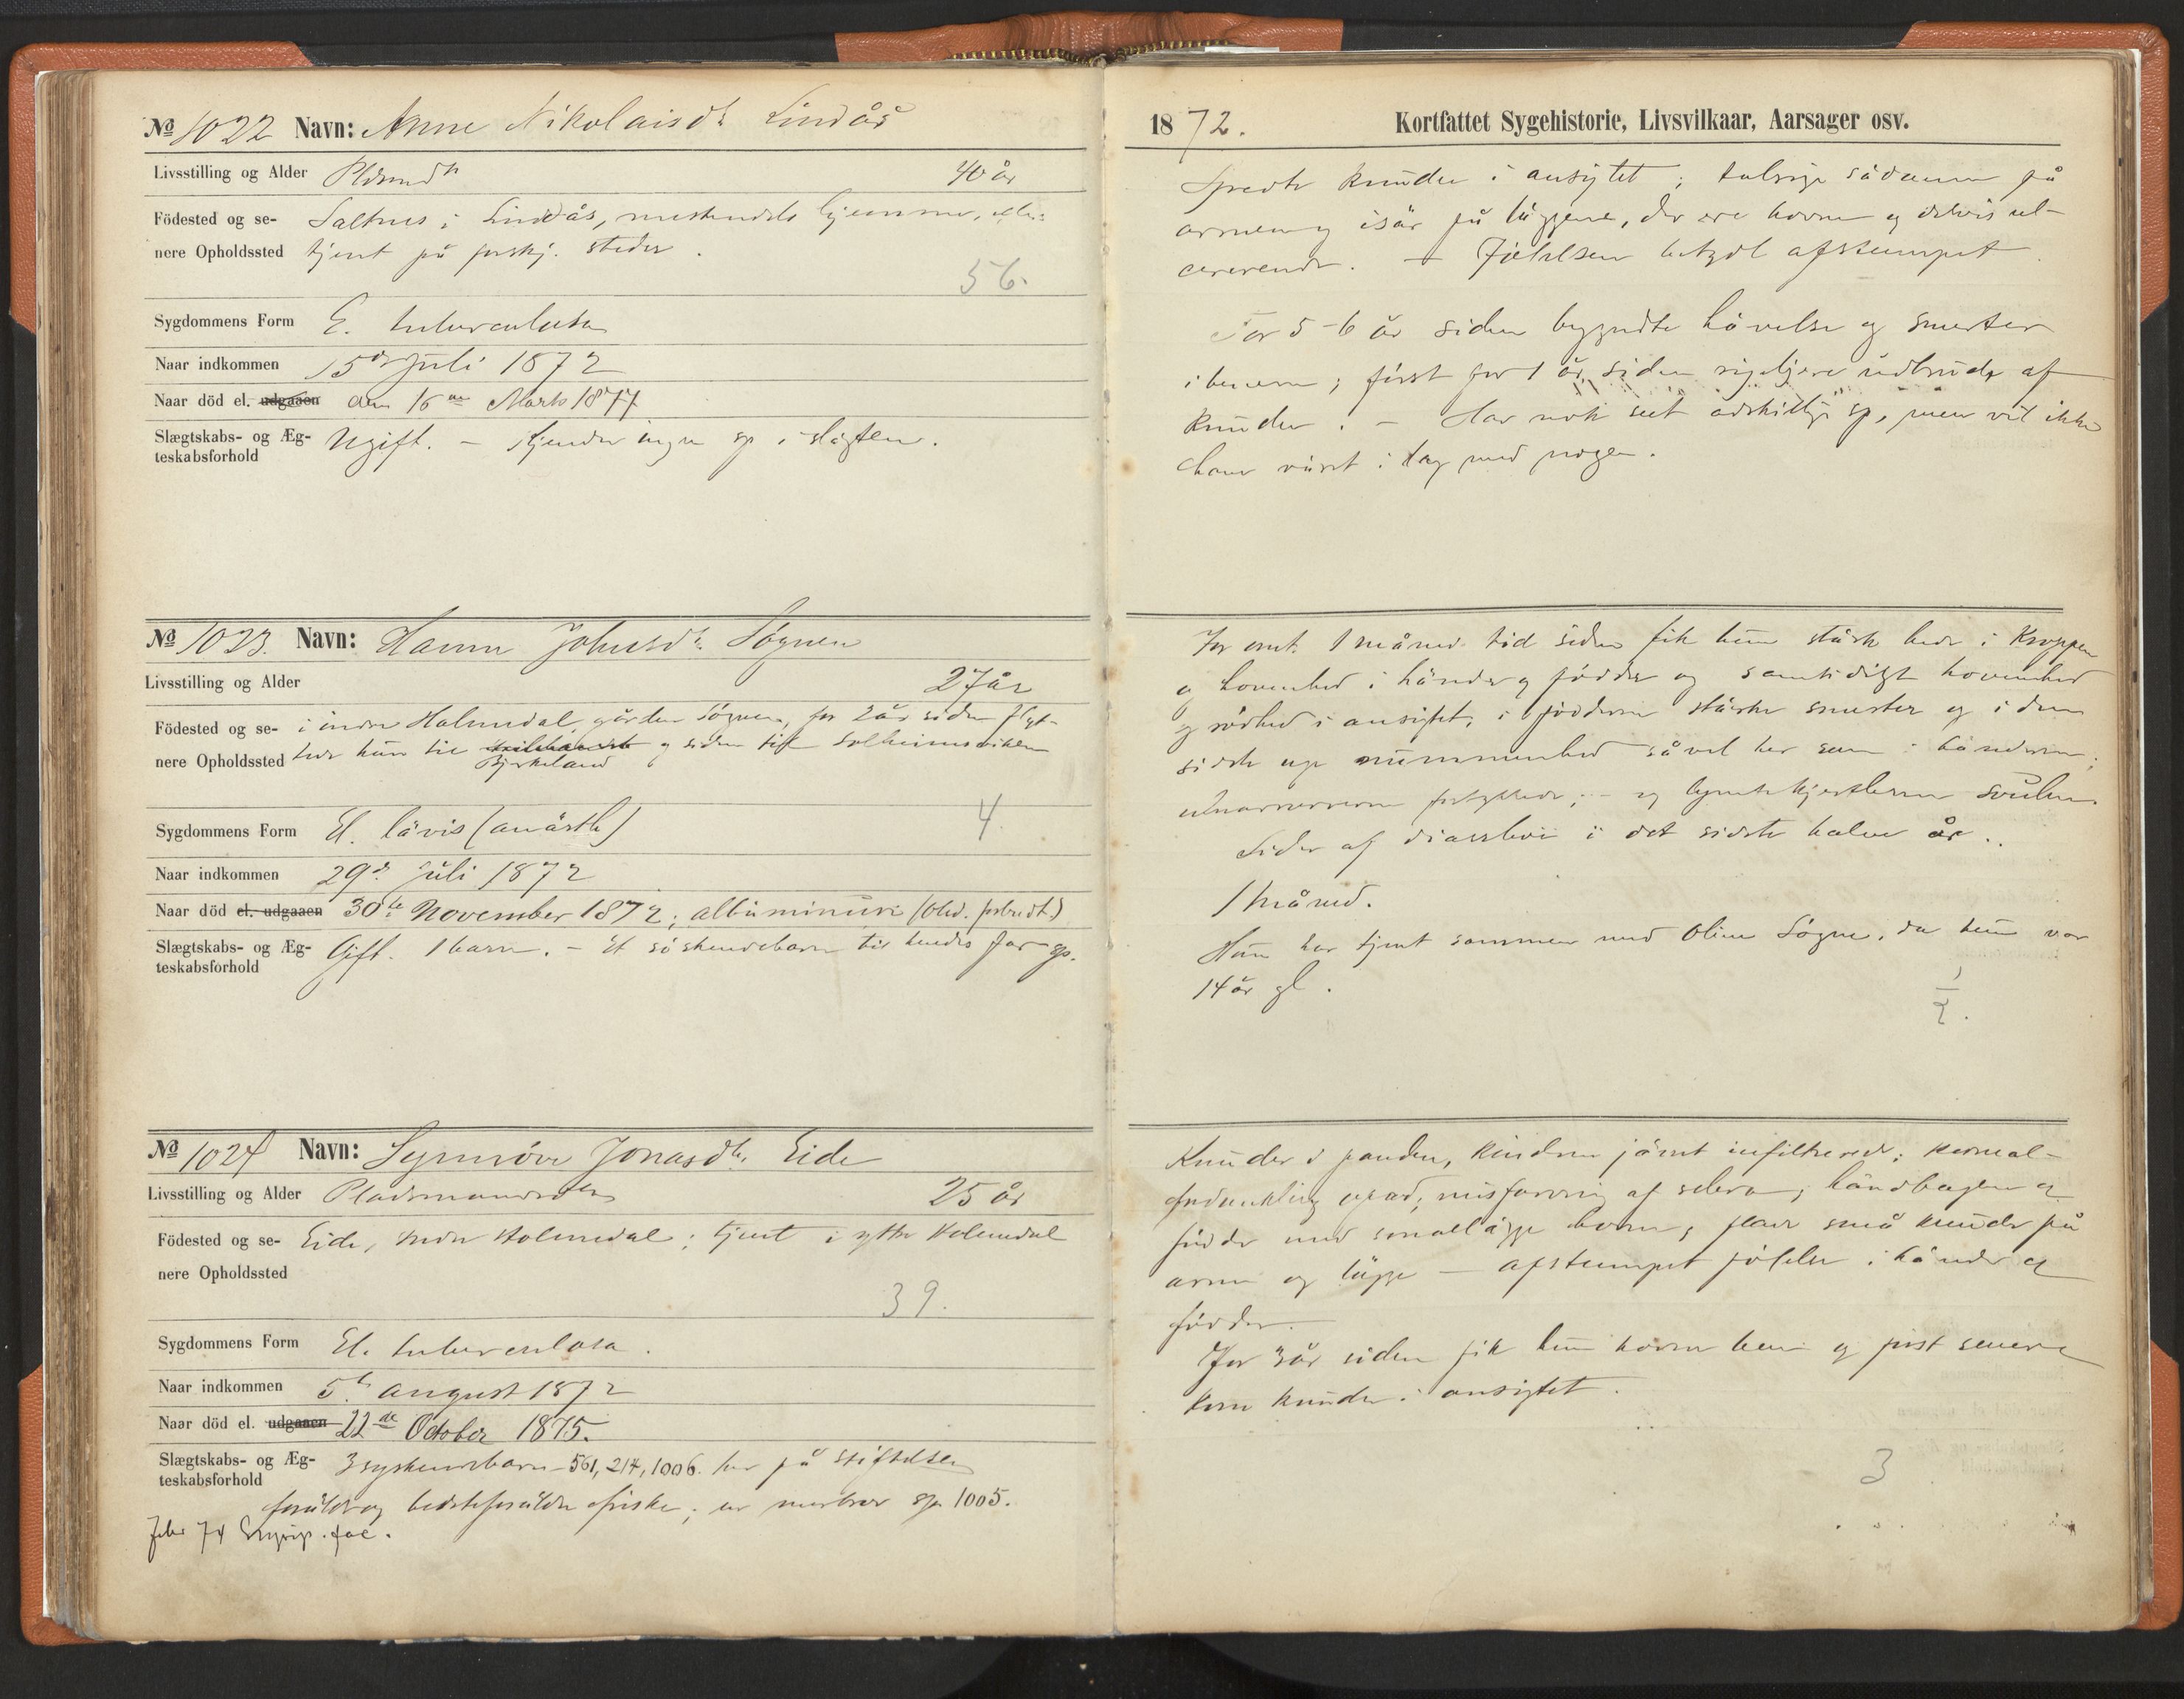 No 1022 Navn: Anne Nikolaisdtr Lindås
Livsstilling og Alder Pldsmdtr 40 år
Födested og se- Saltnes i Lindås, mestendels hjemme,
nere Opholdssted tjent på forskj. steder.
56.
Sygdommens Form E. tuberculosa
Naar indkommen 15de Juli 1872
Naar död el. udgaaen den 16de Marts 1877
Slægtskabs- og Æg- Ugift. – Kjender ingen sp. i slägten.
teskabsforhold
No 1023. Navn: Hanna Johnsdtr. Søgnen
Livsstilling og Alder 27 år
Födested og se- i indre Holmedal, gården Søgnen, for 2 år siden flyt-
nere Opholdssted tede hun til og siden til Solheimsviken
Bjørkeland
Sygdommens Form El. lävis (anästh) 4.
Naar indkommen 29de Juli 1872
Naar död el. udgaaen 30te November 1872; albuminuri (Obd. forbudt.)
Slægtskabs- og Æg- Gift. 1 barn. – Et söskendebarn til hendes far sp.
teskabsforhold
No 1024 Navn: Synnöve Jonasdtr. Eide
Livsstilling og Alder Pladsmandsdtr 25 år
Födested og se- Eide, indre Holmedal; tjent i yttre Holmedal
nere Opholdssted
39.
Sygdommens Form El. tuberculosa.
Naar indkommen 5te august 1872
Naar död el. udgaaen 22de October 1875.
Slægtskabs- og Æg- 3 syskendebarn – 561, 214, 1006. her på stiftelsen
teskabsforhold
foräldre og bedsteforäldre friske; en morbror sp. 1005.
Febr 74 Erysip. fac.
1872. Kortfattet Sygehistorie, Livsvilkaar, Aarsager osv.
Spredte knuder i ansigtet; talrige sådanne på
armene og isär på läggene, der ere hovne og delvis ul-
cererende. – Fölelsen betydl afstumpet
For 5-6 år siden begyndte hävelse og smerter
i benene; först for 1 år siden rigeligere udbrud af
knuder. – Har nok seet adskillige sp., men vil ikke
have väret i lag med nogen.
For omt. 1 måneds tid siden fik hun stärk hede i kroppen
og hovenhed i händer og födder og samtidigt hovenhed
og rödhed i ansigtet, i födderne stärke smerter og i den
sidste uge nummenhed såvel her som i händerne;
ulnarnerverne fortykkede; – og lymfekjertlerne svulne.
Lider af diarrhoe i det sidste halve år.
1 måned.
Hun har tjent sammen med Oline Søgne, da hun var
14 år gl.
1/2.
Knuder i panden, kinderne jämnt infiltrerede; korneal-
fordunkling opad, misfarvning af sclera; håndbagen og
födder med smallägge hovne, flere små knuder på
arme og lägge – afstumpet fölelse i händer og
födder.
For 3 år siden fik hun hovne ben og först senere
kom knuder i ansigtet.
3